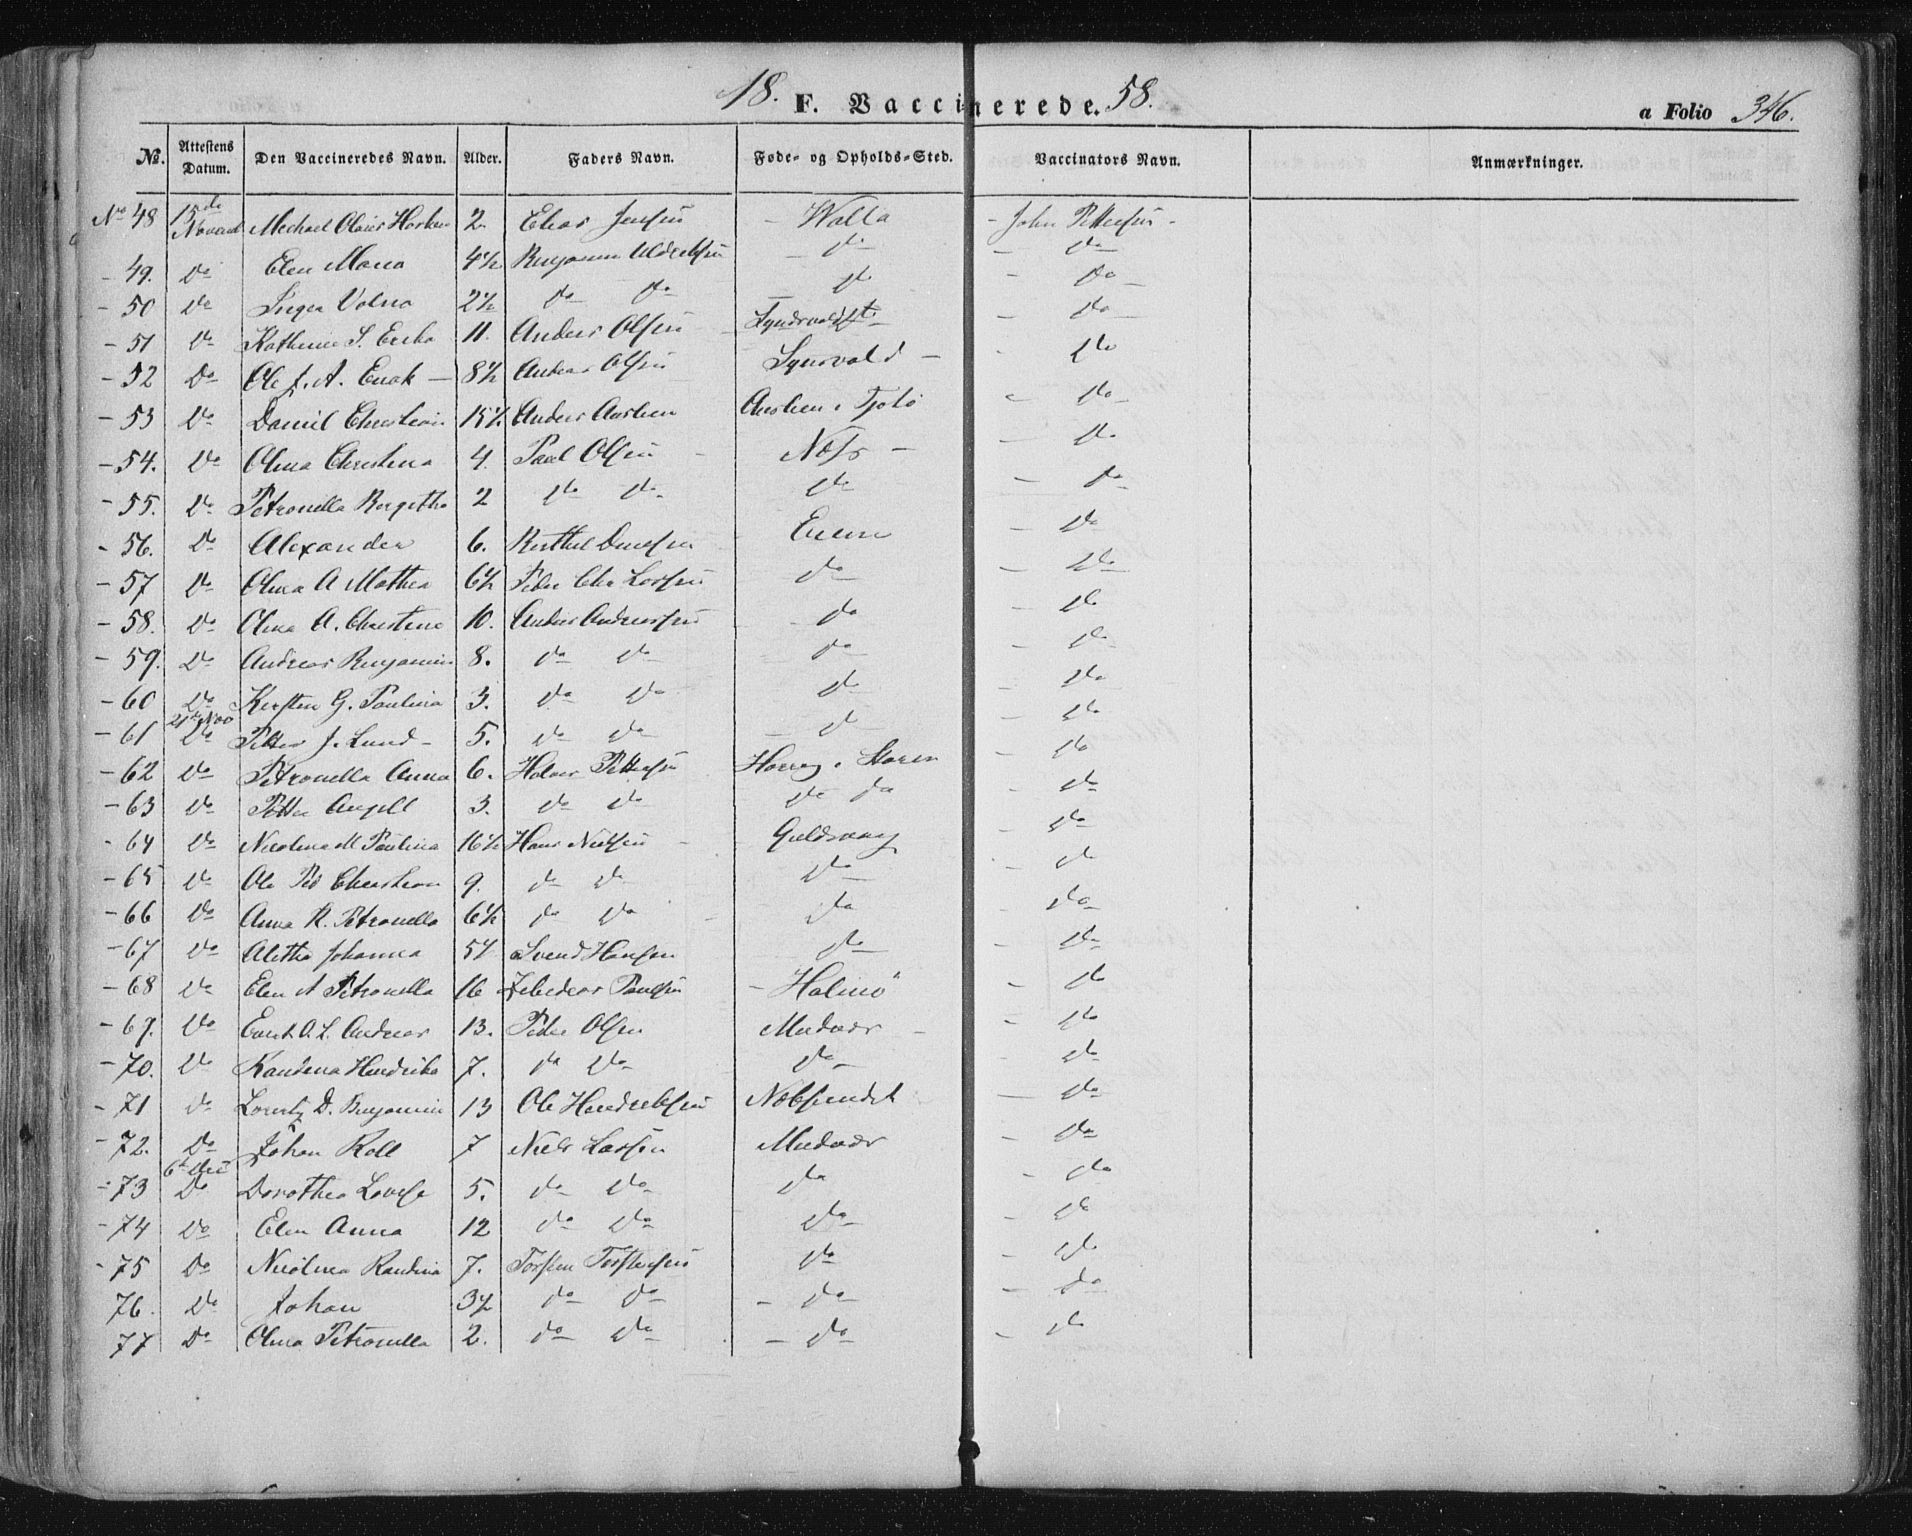 18. F. Vaccinerede. 58. a Folio 346.
No. Attestens Datum. Den Vaccineredes Navn. Alder. Faders Navn. Føde- og Opholds-Sted. Vaccinators Navn. Anmærkninger.
No 48 15de Novemb Michael Olaus 2. Elias Jensen Walla John Pettersen
- 49. Do Elen Maria 4½ Benjamin Uldriksen do do
- 50 Do Inger Volna 2½ do do do do
- 51 Do Kathrine S. Ericka 11. Anders Olsen do
- 52 Do Ole J. A. Enok 8½ Andreas Olsen Synsvold do
- 53 Do Daniel Christian 15½ Anders Aashen Aashen i Tjotø do
- 54. Do Olina Christina 4. Paul Olsen do
- 55. Do Petronella Bergitha 2 do do do do
- 56. Do Alexander 6. do
- 57 Do Olina A Mathea 6½ Peder do do
- 58. Do Olina A. Christine 10. Anders Andreassen do do
- 59. Do Andreas Benjamin 8. do do do do
- 60 Do Kirsten G. Paulina 3. do do do do
- 61 21de Nov Do Petter J. Lund 5. do do do do
- 62 Do Petronella Anna 6. Pettersen do
- 63 Do Petter Angell 3. do do do do do
- 64 Do Nicolina M Paulina 16½ Hans Nielsen Guldsvaag do
- 65 Do Ole Ped Christian 9. do do do do
- 66 Do Anna R. Petronella 6½ do do do do
- 67 Do Aletha Johanna 5½ Svend Hansen do do
- 68 Do Elen A Petronella 16 Zebedeas Paulsen Halmø do
- 69. Do Andreas 13. Peder Olsen Mudvær do
- 70. Do Randina Hendrika 7. do do do do
- 71 Do Lorentz D. Benjamin 13 Ole Hendriksen do
- 72. Do Johan Roll 7 Niels Larsen Mudvær do
- 73 6te Dec Do Dorothea Lovise 5. do do do do
- 74 Do Elen Anna 12 do do do do
- 75 Do Nicolina Randina 7. Torsten Torstensen do do
76. Do Johan 3½ do do do do
77 Do Olina Petronella 2. do do do do